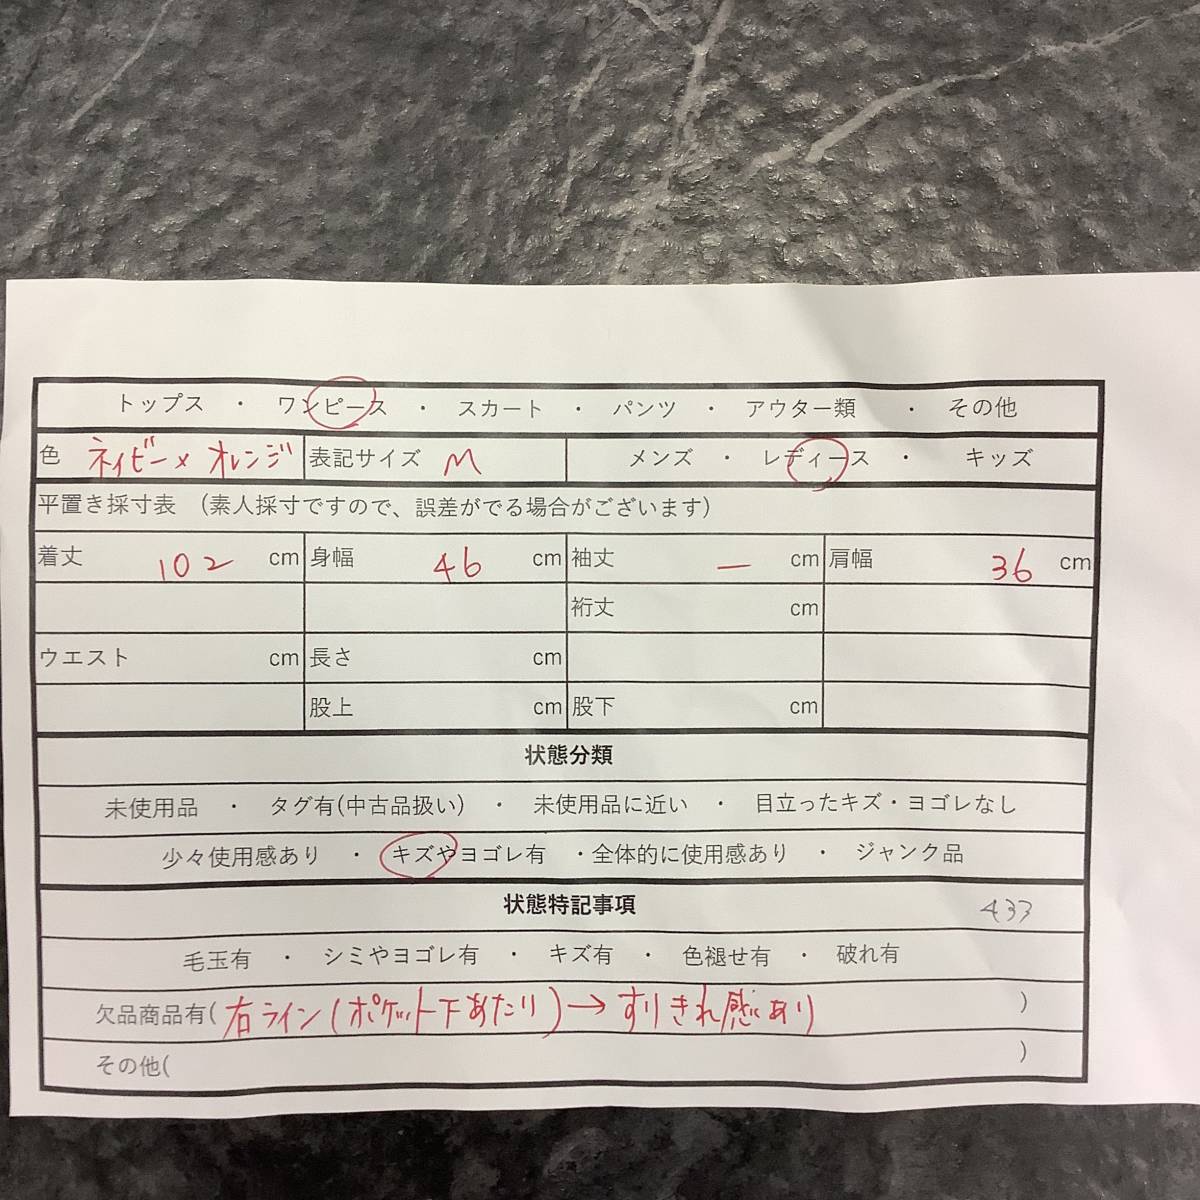 トップス ・ ワンピース ・ スカート ・ パンツ ・ アウター類 ・ その他
色 ネイビー×オレンジ 表記サイズ M メンズ ・ レディース ・ キッズ
平置き採寸表 (素人採寸ですので、誤差がでる場合がございます)
着丈 102 cm 身幅 46 cm 袖丈 ー cm 肩幅 36 cm
裄丈 cm
ウエスト cm 長さ cm
股上 cm 股下 cm
状態分類
未使用品 ・ タグ有(中古品扱い) ・ 未使用品に近い ・ 目立ったキズ・ヨゴレなし
少々使用感あり ・ キズやヨゴレ有 ・全体的に使用感あり ・ ジャンク品
状態特記事項 433
毛玉有 ・ シミやヨゴレ有 ・ キズ有 ・ 色褪せ有 ・ 破れ有
欠品商品有( 右ライン(ポケット下あたり)→すりきれ感あり )
その他( )